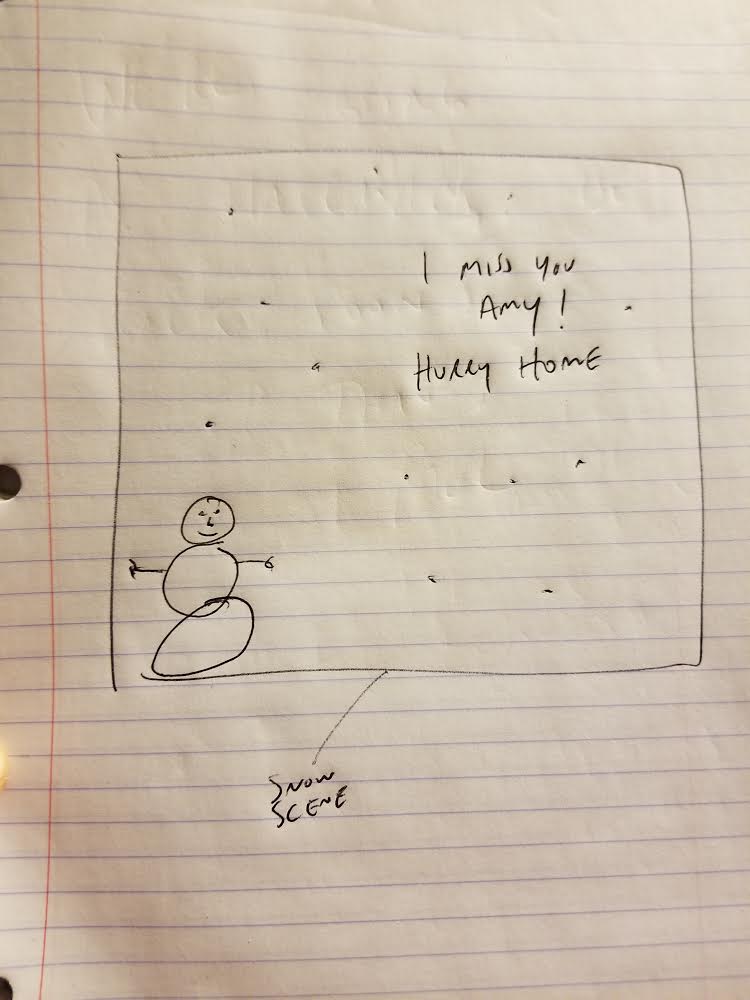 I MISS YOU
AMY!
HURRY HOME
SNOW
SCENE